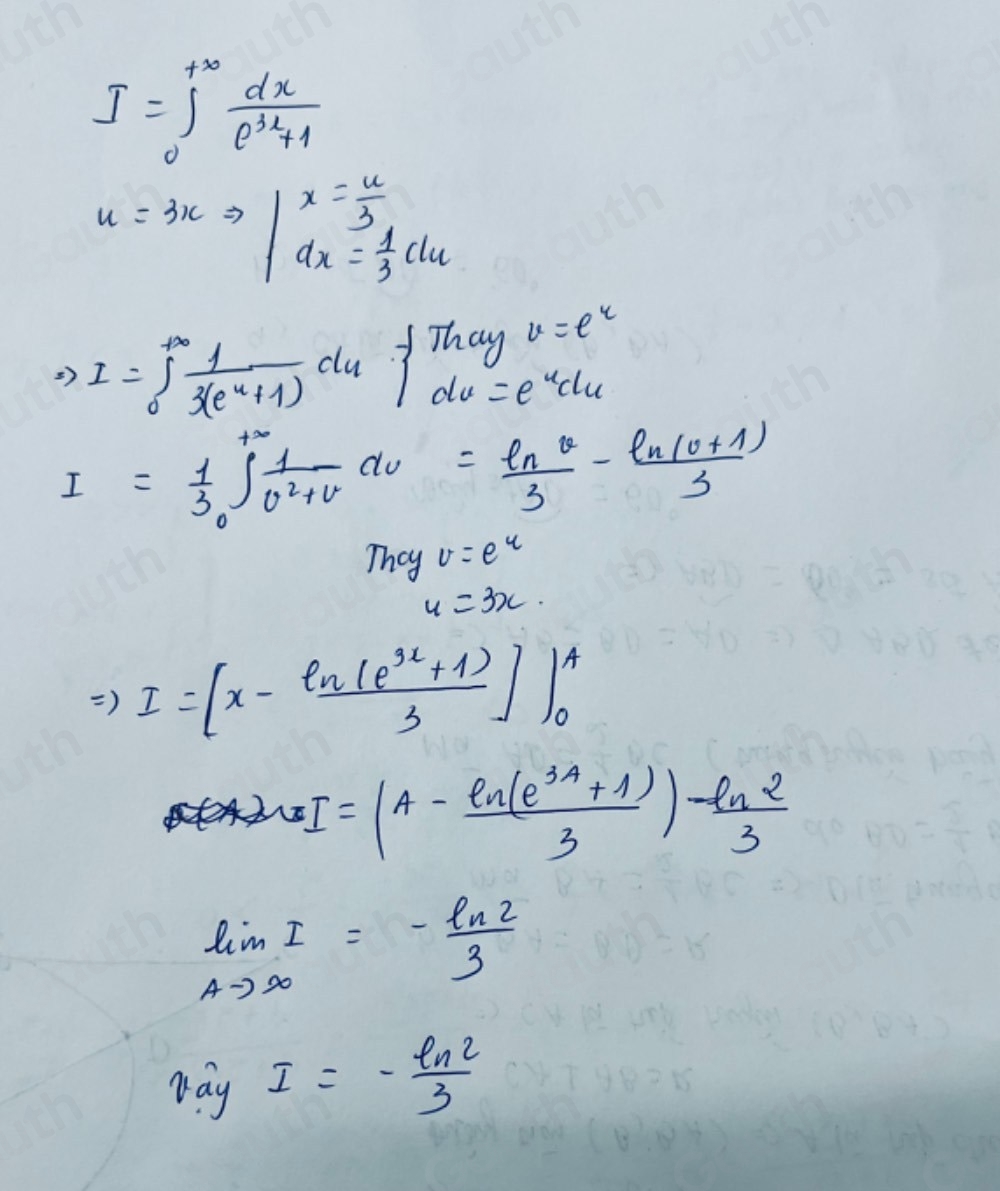 I = ∫₀^{+∞} dx / (e^{3x}+1)
u = 3x ⇒ | x = u/3
dx = 1/3 du
⇒ I = ∫₀^{+∞} 1 / (3(e^u+1)) du } Thay v = e^u
dv = e^u du
I = 1/3 ∫₀^{+∞} 1 / (v²+v) dv = ln v / 3 - ln(v+1) / 3
Thay v = e^u
u = 3x.
=) I = [x - ln(e^{3x}+1) / 3] |₀^A
I = (A - ln(e^{3A}+1) / 3) - ln 2 / 3
lim_{A→∞} I = - ln 2 / 3
Vậy I = - ln 2 / 3